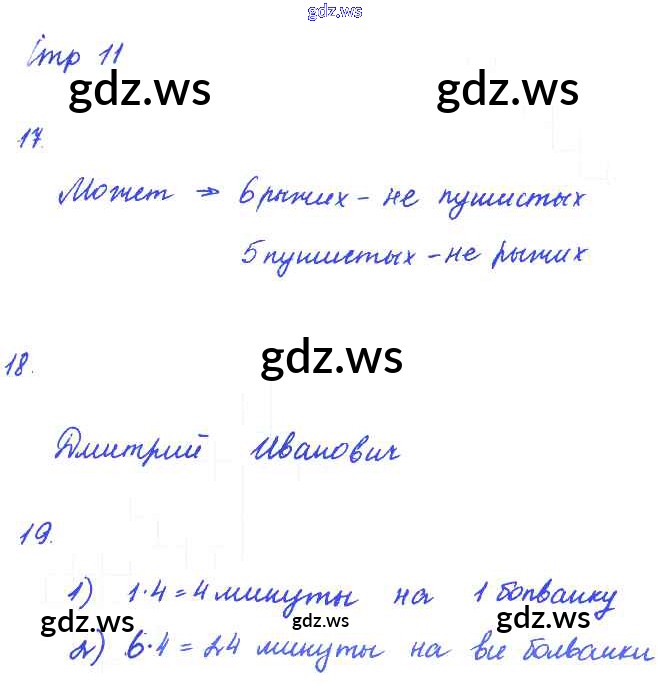 gdz.ws
Стр 11
gdz.ws gdz.ws
17.
Может → 6 рыжих - не пушистых
5 пушистых - не рыжих
gdz.ws
18.
Дмитрий Иванович
19.
1) 1·4 = 4 минуты на 1 болванку
gdz.ws gdz.ws gdz.ws
2) 6·4 = 24 минуты на все болванки